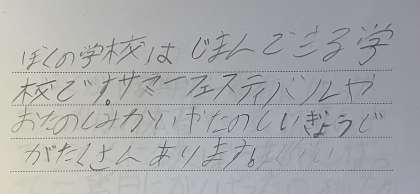 ぼくの学校は じまんできる学
校です。サマーフェスティバルや
おたのしみかいやたのしいぎょうじ
がたくさんあります。